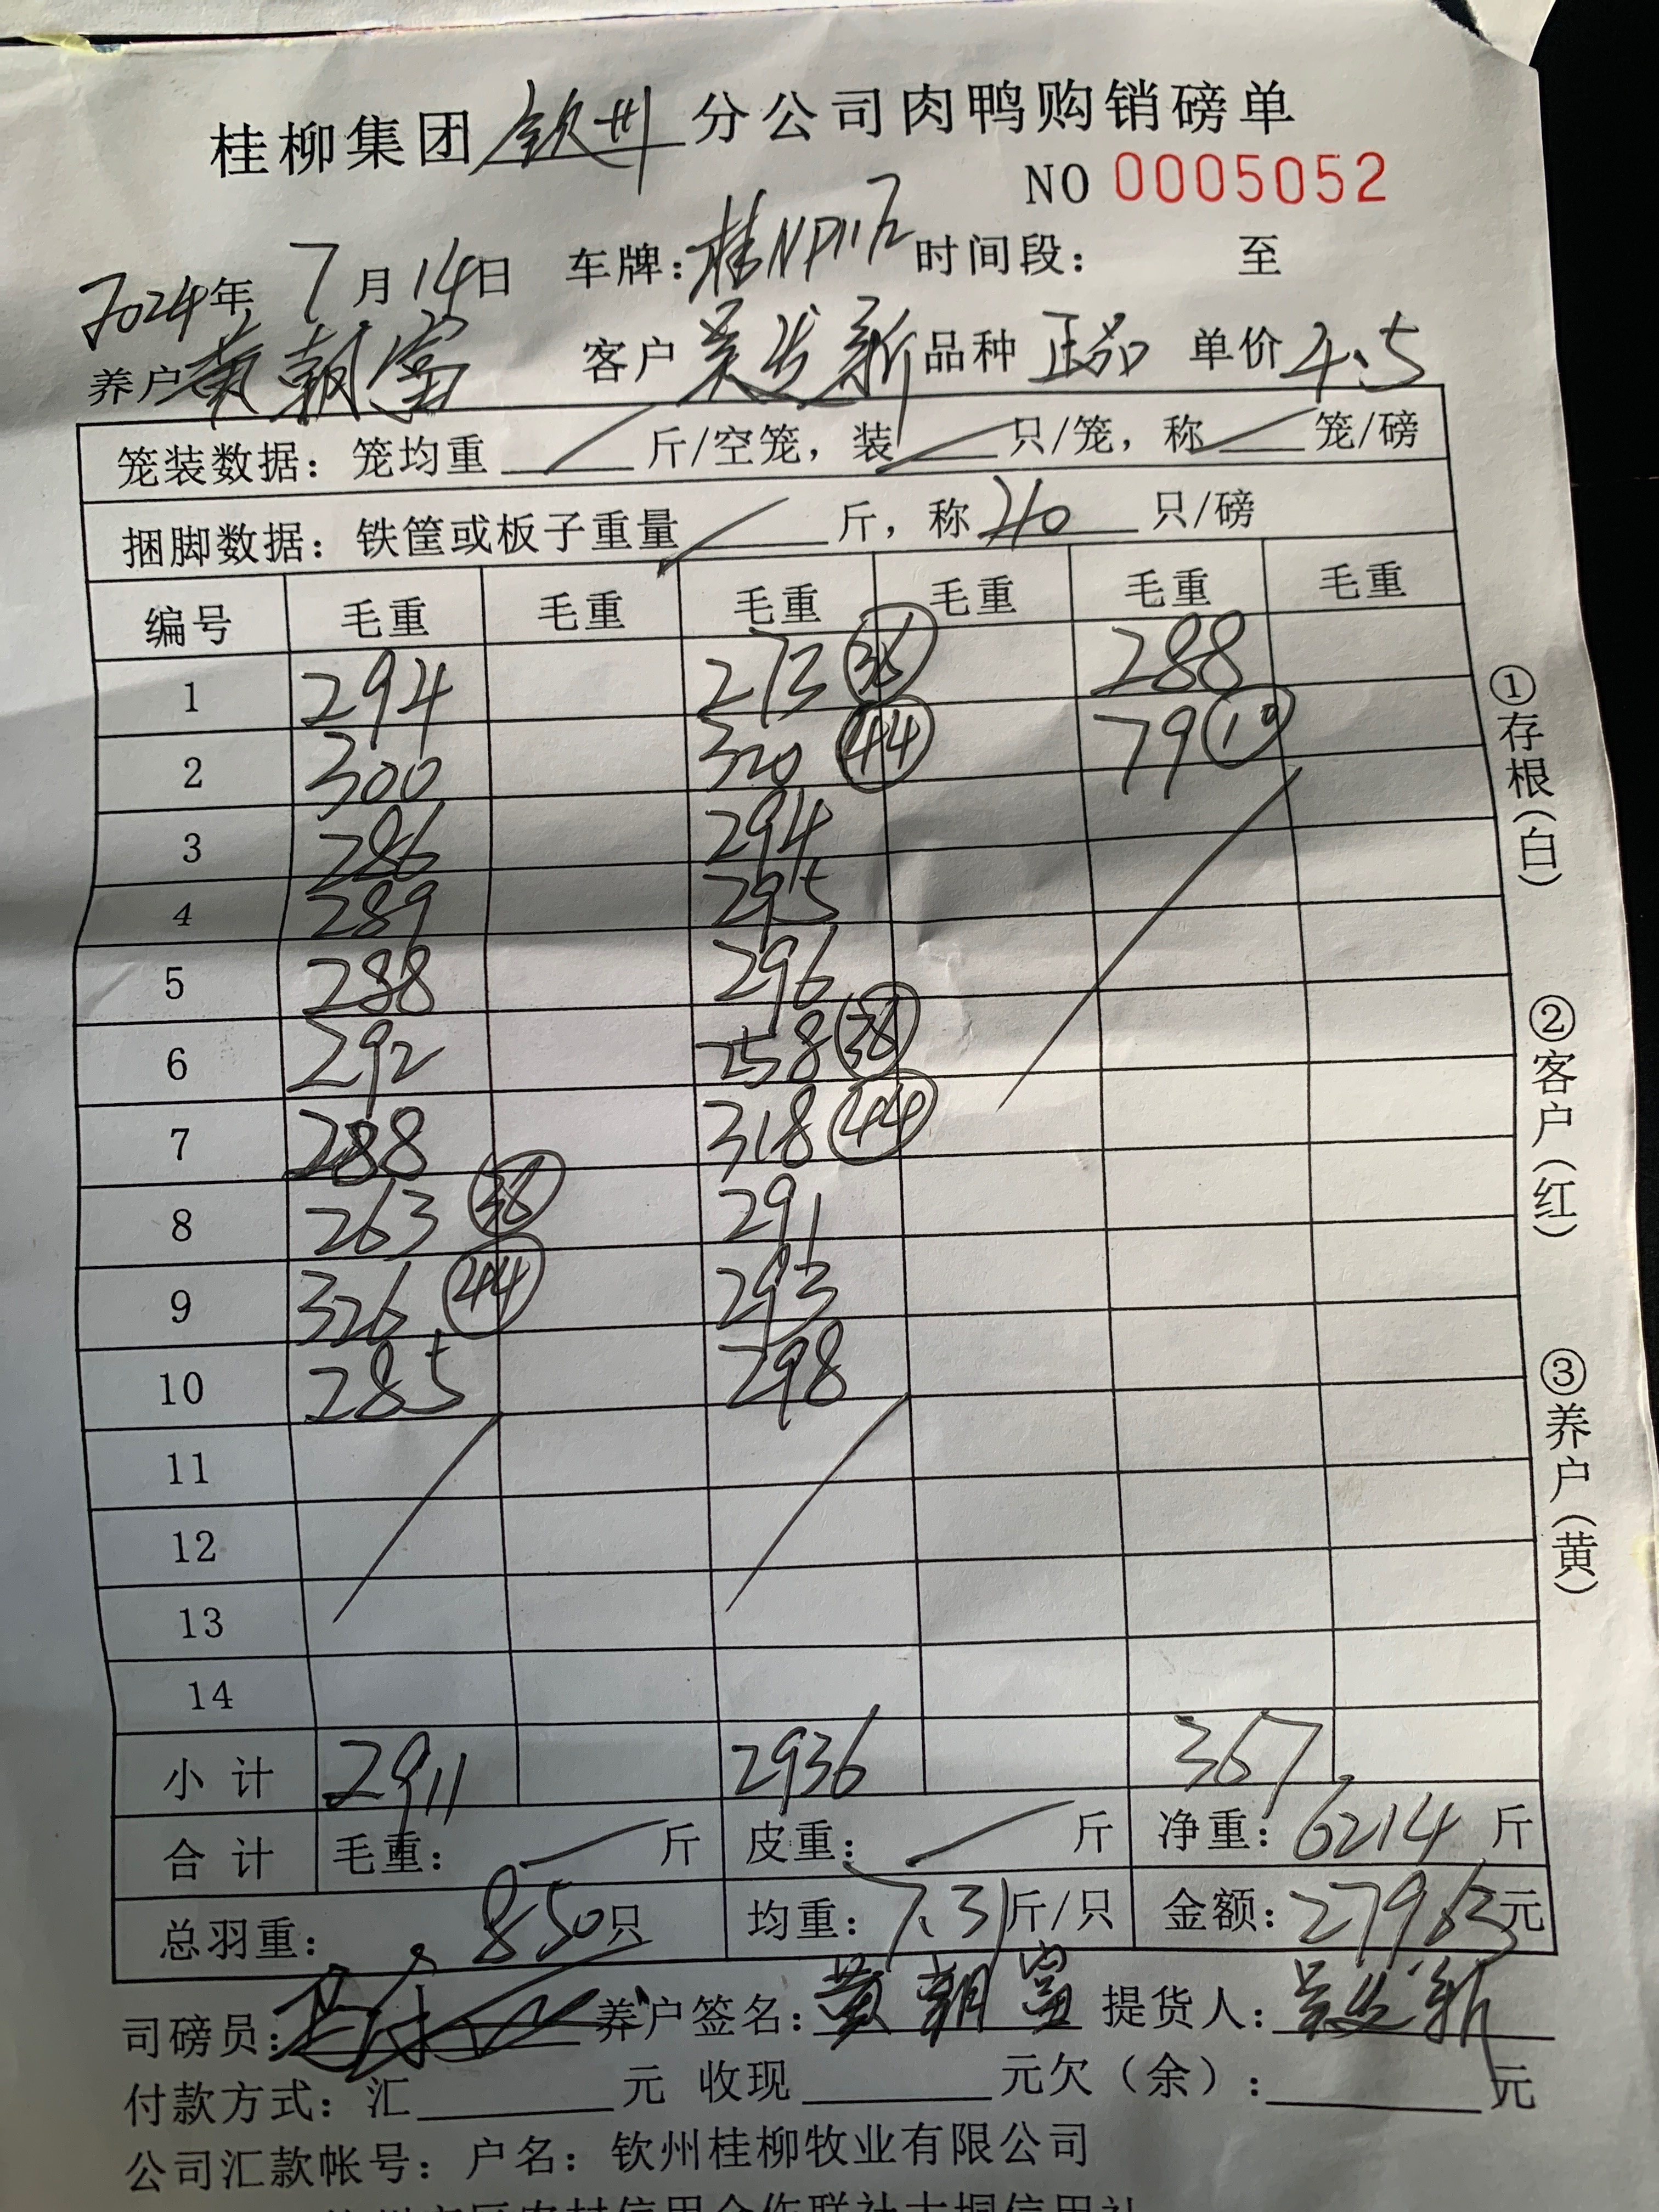 桂柳集团 钦州 分公司肉鸭购销磅单
NO 0005052
2024年 7月14日 车牌: 时间段: 至
养户 黄朝富 客户 吴发新 品种 正品 单价 4.5
笼装数据: 笼均重 斤/空笼, 装 只/笼, 称 笼/磅
捆脚数据: 铁筐或板子重量 斤, 称 40 只/磅
编号 毛重 毛重 毛重 毛重 毛重 毛重
1 294 273 288
2 300 320 44 79
3 286 294
4 289 295
5 288 296
6 292 258
7 288 318 44
8 263 38 291
9 326 44 293
10 285 298
11
12
13
14
小计 2911 2936 367
合计 毛重: 斤 皮重: 斤 净重: 6214 斤
总羽重: 850只 均重: 7.31斤/只 金额: 27963元
司磅员: 养户签名: 黄朝富 提货人: 吴发新
付款方式: 汇 元 收现 元欠(余): 元
公司汇款帐号: 户名: 钦州桂柳牧业有限公司
①存根(白)
②客户(红)
③养户(黄)